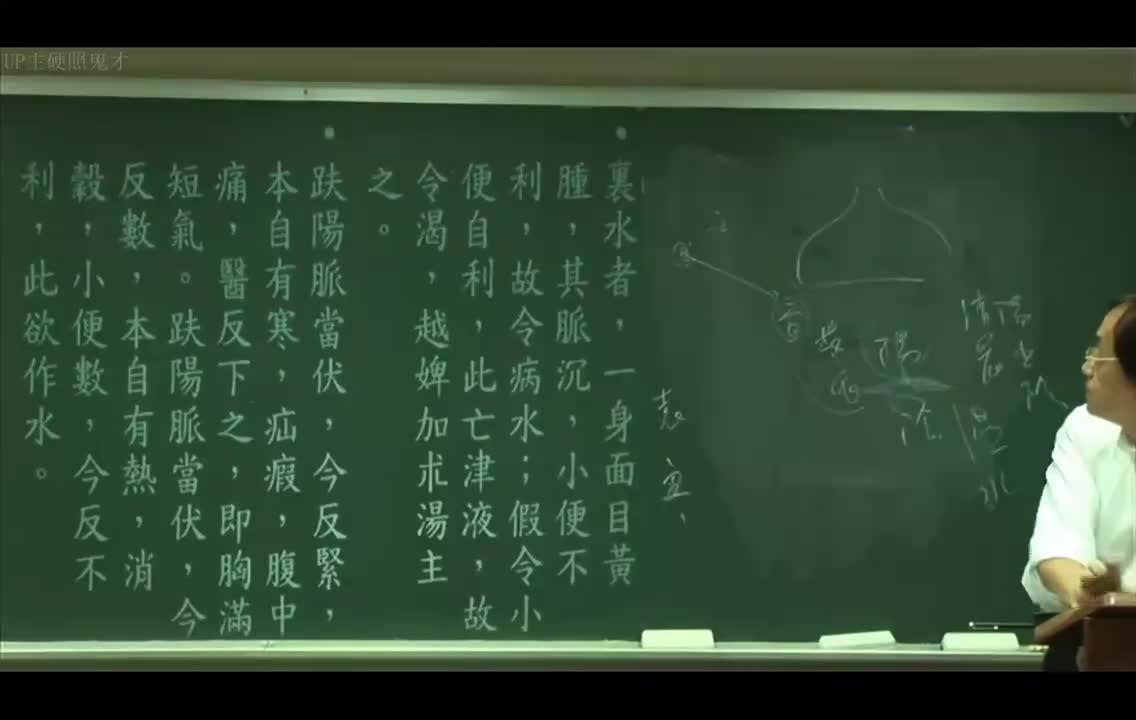 UP主硬照鬼才
裏水者，一身面目黃
腫，其脈沉，小便不
利，故令病水；假令小
便自利，此亡津液，故
令渴，越婢加朮湯主
之。
趺陽脈當伏，今反緊，
本自有寒，疝瘕，腹中
痛，醫反下之，即胸滿
短氣。趺陽脈當伏，今
反數，本自有熱，消
穀，小便數，今反不
利，此欲作水。
陽
水